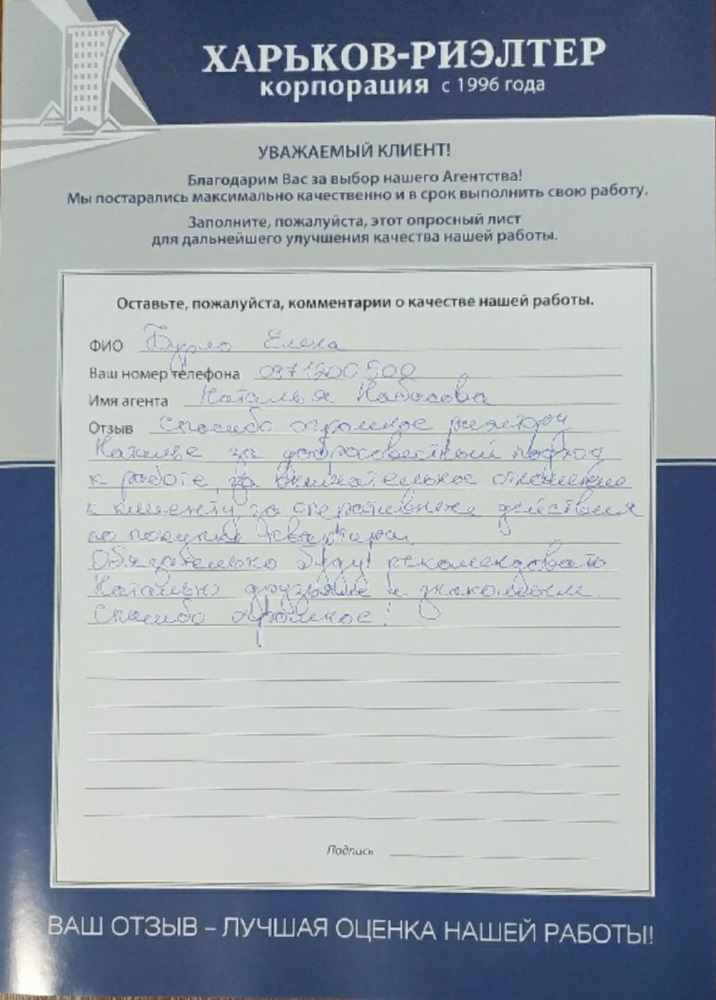 ХАРЬКОВ-РИЭЛТЕР
корпорация с 1996 года
УВАЖАЕМЫЙ КЛИЕНТ!
Благодарим Вас за выбор нашего Агентства!
Мы постарались максимально качественно и в срок выполнить свою работу.
Заполните, пожалуйста, этот опросный лист
для дальнейшего улучшения качества нашей работы.
Оставьте, пожалуйста, комментарии о качестве нашей работы.
ФИО Елена
Ваш номер телефона
Имя агента Наталья
Отзыв Спасибо огромное риэлтору
Наталье за добросовестный подход
к работе, за внимательное отношение
к клиенту, за оперативные действия
по покупке квартиры.
Обязательно буду рекомендовать
Наталью друзьям и знакомым.
Спасибо огромное!
Подпись
ВАШ ОТЗЫВ – ЛУЧШАЯ ОЦЕНКА НАШЕЙ РАБОТЫ!